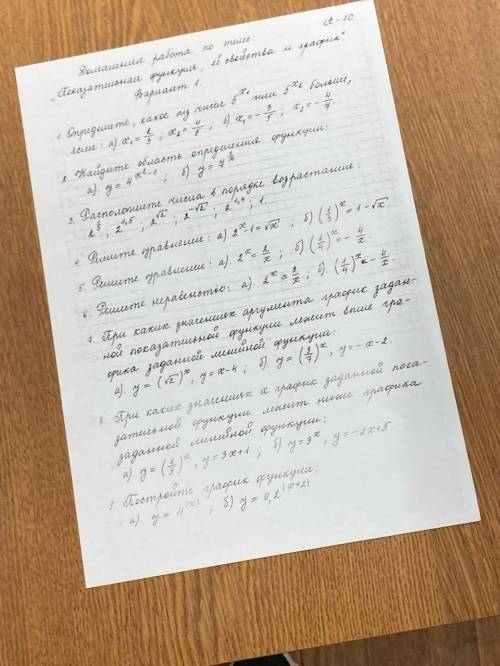 А-10.
Домашняя работа по теме:
"Показательная функция, её свойства и график".
Вариант 1.
1. Определите, какое из чисел 5^x₁ или 5^x₂ больше,
если: а) x₁ = 2/3; x₂ = 4/5; б) x₁ = -3/5; x₂ = -4/7
2. Найдите область определения функции:
а). y = 4^(x²-1); б) y = 7^(1/x)
3. Расположите числа в порядке возрастания:
2^(1/3); 2^1,5; 2^√2; 2^-√2; 2^1,4; 1.
4. Решите уравнение: а) 2^x-1=√x; б) (1/3)^x = 1-√x.
5. Решите уравнение: а). 2^x = 2/x; б) (1/4)^x = -4/x.
6. Решите неравенство: а). 2^x ≥ 2/x; б). (1/4)^x ≤ -4/x.
7. При каких значениях аргумента график задан-
ной показательной функции лежит выше гра-
фика заданной линейной функции:
а). y = (√2)^x, y = x-4; б) y = (2/7)^x, y = -x-2.
8. При каких значениях x график заданной пока-
зательной функции лежит ниже графика
заданной линейной функции:
а). y = (1/3)^x; y = 3x+1; б) y = 3^x, y = -2x+5.
9. Постройте график функции:
а). y = 4^|x|; б) y = 0,2^|x+2|